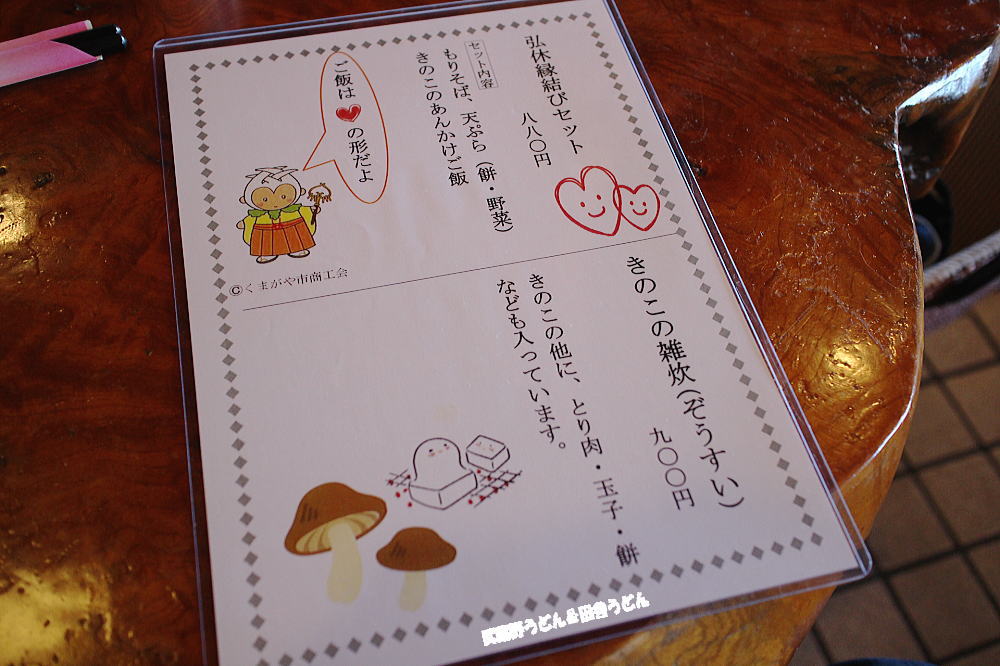 弘休縁結びセット
八八〇円
セット内容
もりそば、天ぷら（餅・野菜）
きのこのあんかけご飯
ご飯は❤の形だよ
©くまがや市商工会
きのこの雑炊（ぞうすい）
九〇〇円
きのこの他に、とり肉・玉子・餅
なども入っています。
うどん&田舎うどん